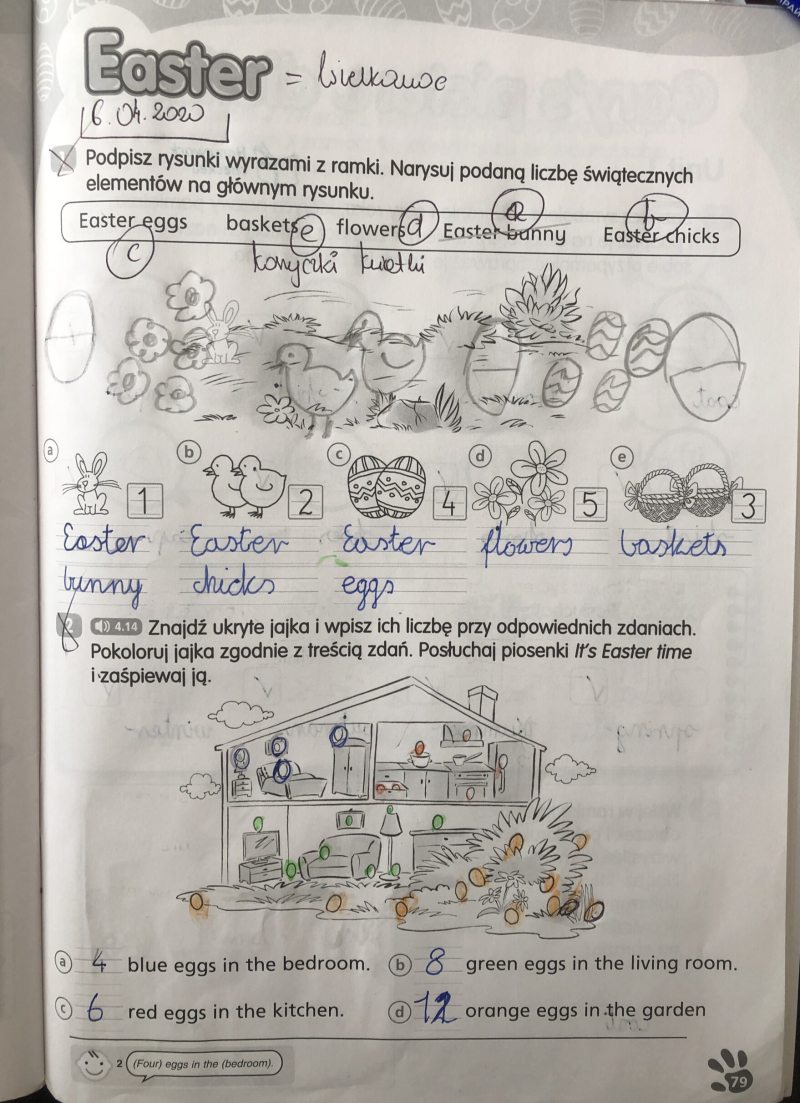 Easter = Wielkanoc
16.04.2020
Podpisz rysunki wyrazami z ramki. Narysuj podaną liczbę świątecznych
elementów na głównym rysunku.
a b
Easter eggs baskets e flowers d Easter bunny Easter chicks
c koszyczki kwiatki
a b c d e
1 2 4 5 3
Easter Easter Easter flowers baskets
bunny chicks eggs
2 4.14 Znajdź ukryte jajka i wpisz ich liczbę przy odpowiednich zdaniach.
Pokoloruj jajka zgodnie z treścią zdań. Posłuchaj piosenki It's Easter time
i zaśpiewaj ją.
a 4 blue eggs in the bedroom. b 8 green eggs in the living room.
c 6 red eggs in the kitchen. d 12 orange eggs in the garden
2 (Four) eggs in the (bedroom).
79